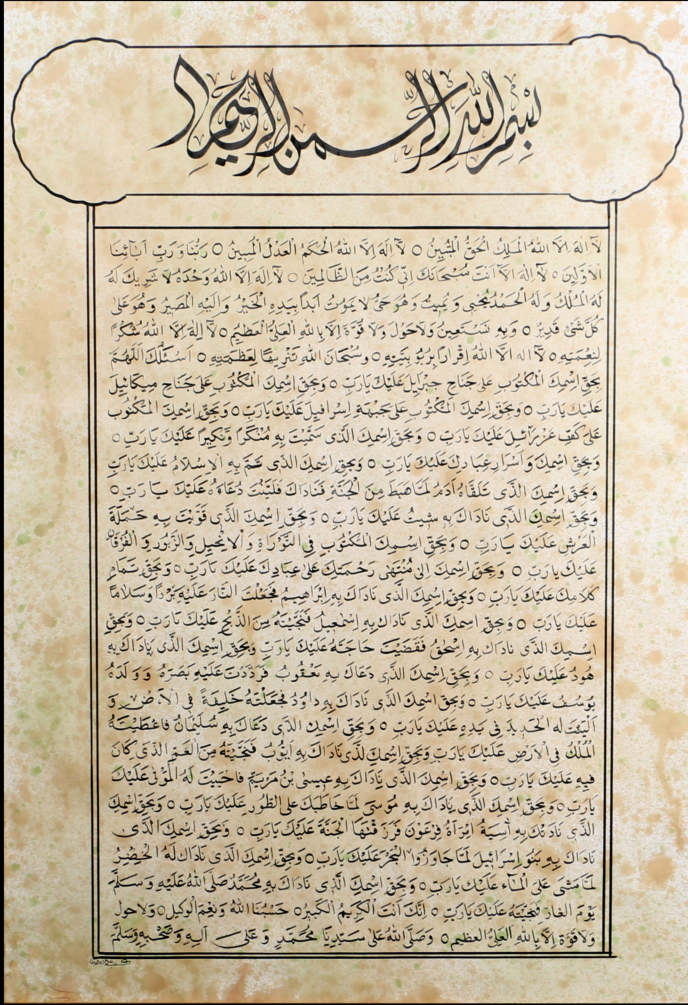 بسم الله الرحمن الرحيم
لَا إِلَهَ إِلَّا اللهُ الْمَلِكُ الْحَقُّ الْمُبِينُ ○ لَا إِلَهَ إِلَّا اللهُ الْحَكَمُ الْعَدْلُ الْمَبِينُ ○ رَبُّنَا وَرَبُّ آبَائِنَا
الْأَوَّلِينَ ○ لَا إِلَهَ إِلَّا أَنْتَ سُبْحَانَكَ إِنِّي كُنْتُ مِنَ الظَّالِمِينَ ○ لَا إِلَهَ إِلَّا اللهُ وَحْدَهُ لَا شَرِيكَ لَهُ
لَهُ الْمُلْكُ وَلَهُ الْحَمْدُ يُحْيِي وَيُمِيتُ وَهُوَ حَيٌّ لَا يَمُوتُ أَبَدًا بِيَدِهِ الْخَيْرُ وَإِلَيْهِ الْمَصِيرُ وَهُوَ عَلَى
كُلِّ شَيْءٍ قَدِيرٌ ○ وَبِهِ نَسْتَعِينُ وَلَا حَوْلَ وَلَا قُوَّةَ إِلَّا بِاللهِ الْعَلِيِّ الْعَظِيمِ ○ لَا إِلَهَ إِلَّا اللهُ شُكْرًا
لِنِعْمَتِهِ ○ لَا إِلَهَ إِلَّا اللهُ إِقْرَارًا بِرُبُوبِيَّتِهِ ○ وَسُبْحَانَ اللهِ تَنْزِيهًا لِعَظَمَتِهِ ○ أَسْئَلُكَ اللَّهُمَّ
بِحَقِّ اسْمِكَ الْمَكْتُوبِ عَلَى جَنَاحِ جِبْرَائِيلَ عَلَيْكَ يَارَبِّ ○ وَبِحَقِّ اسْمِكَ الْمَكْتُوبِ عَلَى جَنَاحِ مِيكَائِيلَ
عَلَيْكَ يَارَبِّ ○ وَبِحَقِّ اسْمِكَ الْمَكْتُوبِ عَلَى جَبْهَةِ إِسْرَافِيلَ عَلَيْكَ يَارَبِّ ○ وَبِحَقِّ اسْمِكَ الْمَكْتُوبِ
عَلَى كَفِّ عَزْرَائِيلَ عَلَيْكَ يَارَبِّ ○ وَبِحَقِّ اسْمِكَ الَّذِي سَمَّيْتَ بِهِ مُنْكَرًا وَنَكِيرًا عَلَيْكَ يَارَبِّ ○
وَبِحَقِّ اسْمِكَ وَأَسْرَارِ عِبَادِكَ عَلَيْكَ يَارَبِّ ○ وَبِحَقِّ اسْمِكَ الَّذِي تَمَّ بِهِ الْإِسْلَامُ عَلَيْكَ يَارَبِّ
وَبِحَقِّ اسْمِكَ الَّذِي تَلَقَّاهُ آدَمُ لَمَّا هَبَطَ مِنَ الْجَنَّةِ فَنَادَاكَ فَلَبَّيْتَ دُعَاهُ عَلَيْكَ يَارَبِّ ○
وَبِحَقِّ اسْمِكَ الَّذِي نَادَاكَ بِهِ شِيثُ عَلَيْكَ يَارَبِّ ○ وَبِحَقِّ اسْمِكَ الَّذِي قَوَّيْتَ بِهِ حَمَلَةَ
الْعَرْشِ عَلَيْكَ يَارَبِّ ○ وَبِحَقِّ اسْمِكَ الْمَكْتُوبِ فِي التَّوْرَاةِ وَالْإِنْجِيلِ وَالزَّبُورِ وَالْفُرْقَانِ
عَلَيْكَ يَارَبِّ ○ وَبِحَقِّ اسْمِكَ إِلَى مُنْتَهَى رَحْمَتِكَ عَلَى عِبَادِكَ عَلَيْكَ يَارَبِّ ○ وَبِحَقِّ تَمَامِ
كَلَامِكَ عَلَيْكَ يَارَبِّ ○ وَبِحَقِّ اسْمِكَ الَّذِي نَادَاكَ بِهِ إِبْرَاهِيمُ فَجَعَلْتَ النَّارَ عَلَيْهِ بَرْدًا وَسَلَامًا
عَلَيْكَ يَارَبِّ ○ وَبِحَقِّ اسْمِكَ الَّذِي نَادَاكَ بِهِ إِسْمَعِيلُ فَنَجَّيْتَهُ مِنَ الذَّبْحِ عَلَيْكَ يَارَبِّ ○ وَبِحَقِّ
اسْمِكَ الَّذِي نَادَاكَ بِهِ إِسْحَقُ فَقَضَيْتَ حَاجَتَهُ عَلَيْكَ يَارَبِّ وَبِحَقِّ اسْمِكَ الَّذِي نَادَاكَ بِهِ
هُودُ عَلَيْكَ يَارَبِّ ○ وَبِحَقِّ اسْمِكَ الَّذِي دَعَاكَ بِهِ يَعْقُوبُ فَرَدَدْتَ عَلَيْهِ بَصَرَهُ وَوَلَدَهُ
يُوسُفَ عَلَيْكَ يَارَبِّ ○ وَبِحَقِّ اسْمِكَ الَّذِي نَادَاكَ بِهِ دَاوُدُ فَجَعَلْتَهُ خَلِيفَةً فِي الْأَرْضِ وَ
أَلَيَّنْتَ لَهُ الْحَدِيدَ فِي يَدِهِ عَلَيْكَ يَارَبِّ ○ وَبِحَقِّ اسْمِكَ الَّذِي دَعَاكَ بِهِ سُلَيْمَانُ فَأَعْطَيْتَهُ
الْمُلْكَ فِي الْأَرْضِ عَلَيْكَ يَارَبِّ وَبِحَقِّ اسْمِكَ الَّذِي نَادَاكَ بِهِ أَيُّوبُ فَنَجَّيْتَهُ مِنَ الْغَمِّ الَّذِي كَانَ
فِيهِ عَلَيْكَ يَارَبِّ ○ وَبِحَقِّ اسْمِكَ الَّذِي نَادَاكَ بِهِ عِيسَى بْنُ مَرْيَمَ فَأَحْيَيْتَ لَهُ الْمَوْتَى عَلَيْكَ
يَارَبِّ ○ وَبِحَقِّ اسْمِكَ الَّذِي نَادَاكَ بِهِ مُوسَى لَمَّا خَاطَبَكَ عَلَى الطُّورِ عَلَيْكَ يَارَبِّ ○ وَبِحَقِّ اسْمِكَ
الَّذِي نَادَتْكَ بِهِ آسِيَةُ امْرَأَةُ فِرْعَوْنَ فَرَزَقْتَهَا الْجَنَّةَ عَلَيْكَ يَارَبِّ ○ وَبِحَقِّ اسْمِكَ الَّذِي
نَادَاكَ بِهِ بَنُو إِسْرَائِيلَ لَمَّا جَاوَزُوا الْبَحْرَ عَلَيْكَ يَارَبِّ ○ وَبِحَقِّ اسْمِكَ الَّذِي نَادَاكَ لَهُ الْخِضْرُ
لَمَّا مَشَى عَلَى الْمَاءِ عَلَيْكَ يَارَبِّ ○ وَبِحَقِّ اسْمِكَ الَّذِي نَادَاكَ بِهِ مُحَمَّدٌ صَلَّى اللهُ عَلَيْهِ وَسَلَّمَ
يَوْمَ الْغَارِ فَنَجَّيْتَهُ عَلَيْكَ يَارَبِّ ○ إِنَّكَ أَنْتَ الْكَرِيمُ الْكَبِيرُ ○ حَسْبُنَا اللهُ وَنِعْمَ الْوَكِيلُ ○ وَلَا حول
وَلَا قُوَّةَ إِلَّا بِاللهِ الْعَلِيِّ الْعَظِيمِ ○ وَصَلَّى اللهُ عَلَى سَيِّدِنَا مُحَمَّدٍ وَعَلَى آلِهِ وَصَحْبِهِ وَسَلَّمَ